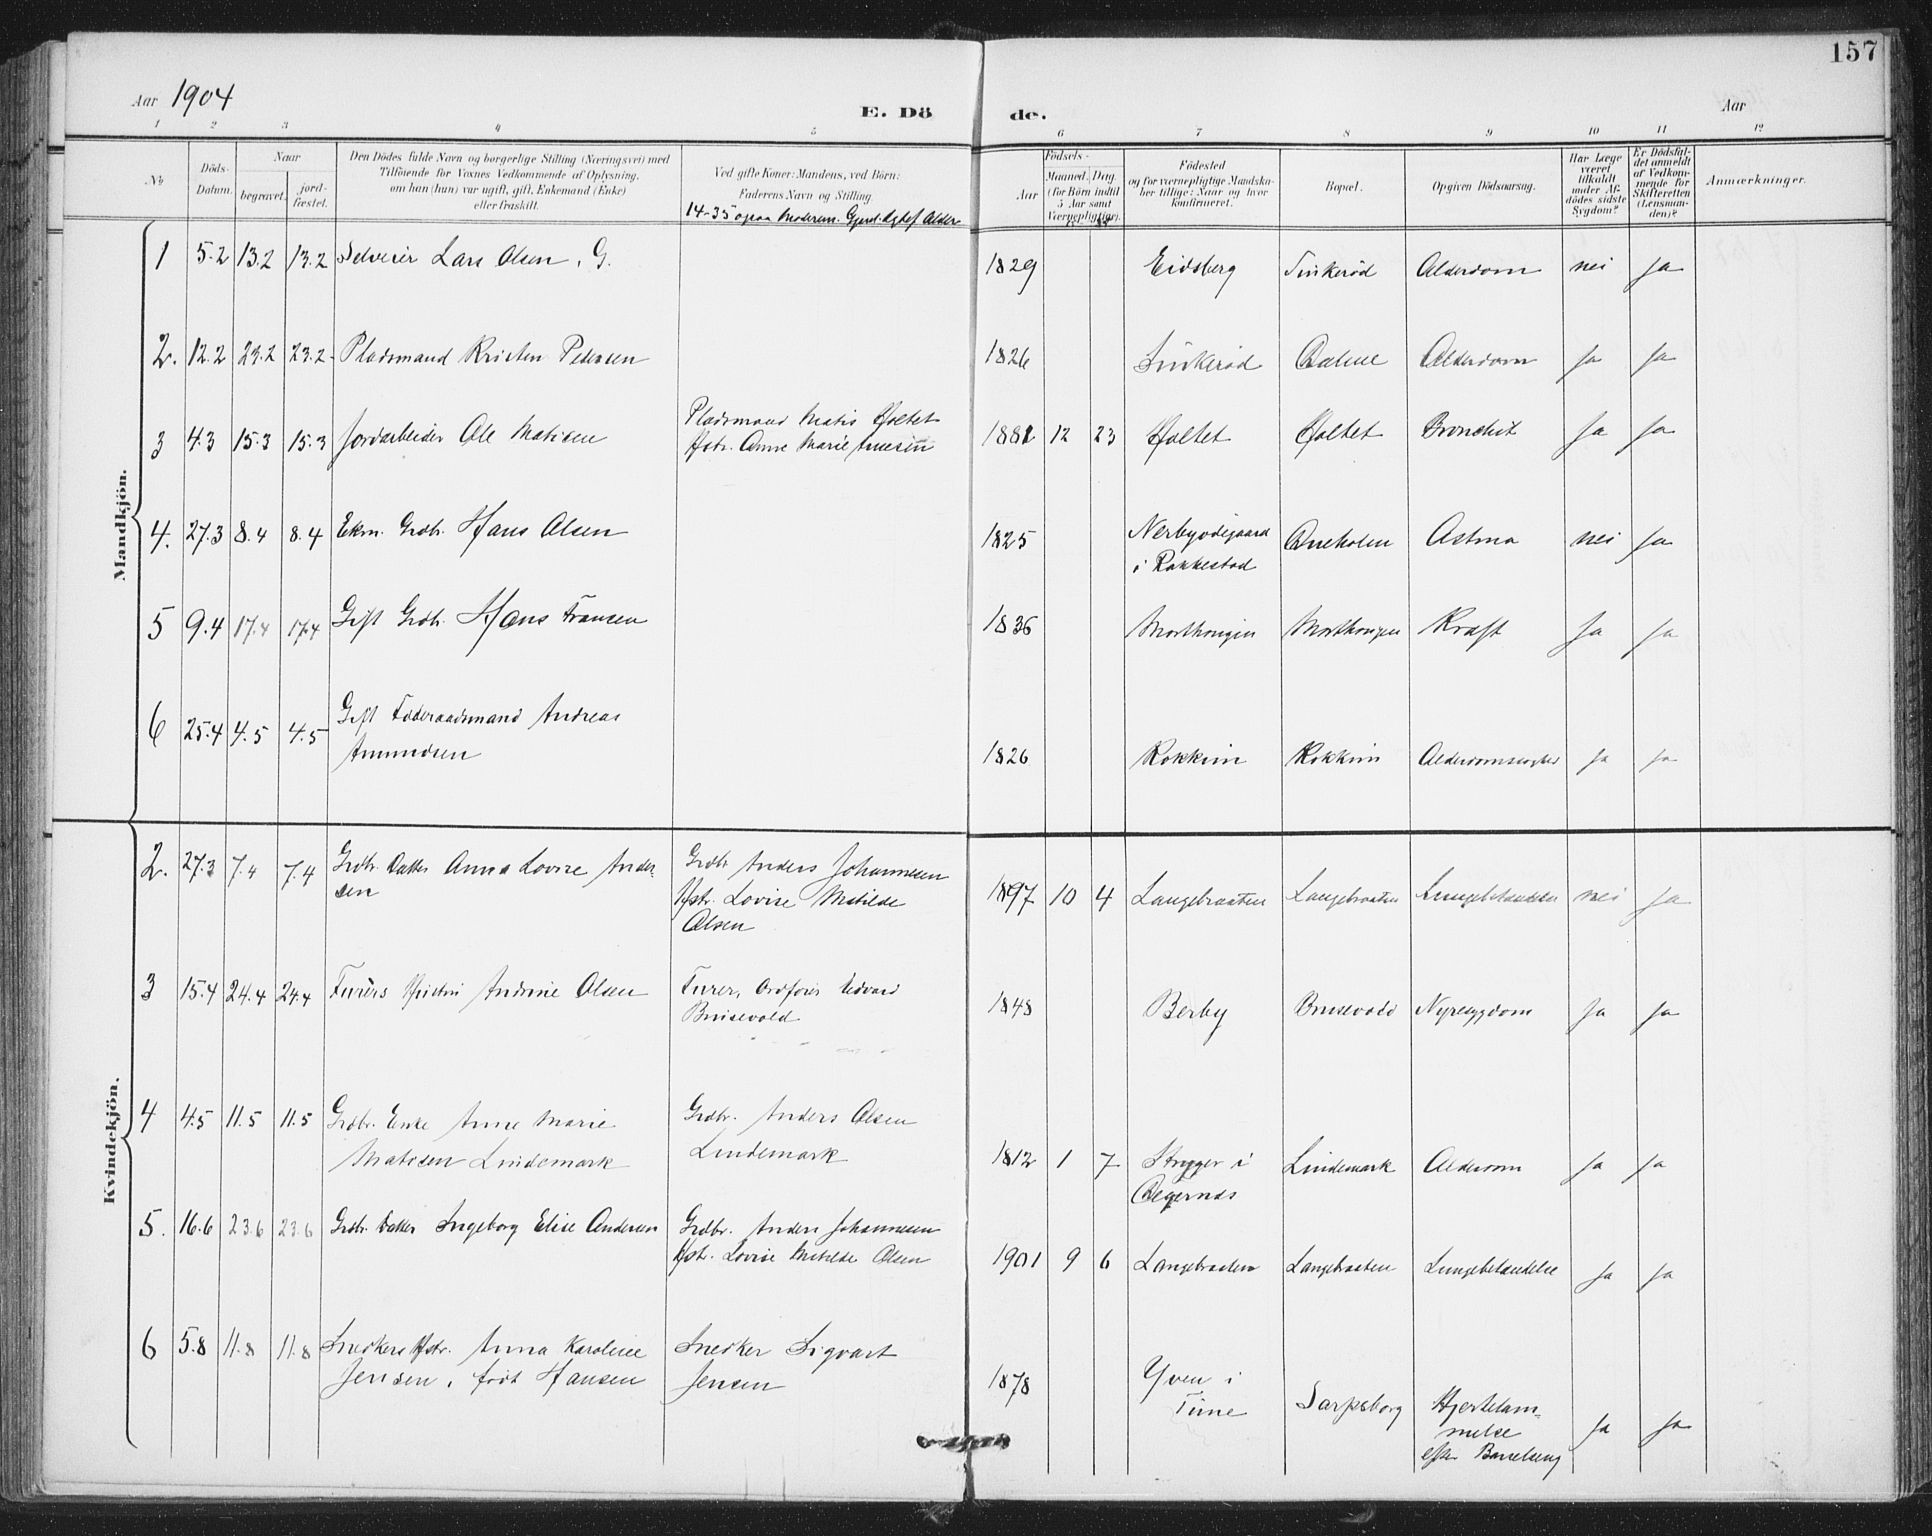 157
Aar 1904
E. Dö de.
Aar
1 2 3 4 5 6 7 8 9 10 11 12
No
Döds-
Datum.
Naar
begravet.
jord-
fæstet.
Den Dödes fulde Navn og borgerlige Stilling (Næringsvei) med
Tilföiende for Voxnes Vedkommende af Oplysning,
om han (hun) var ugift, gift, Enkemand (Enke)
eller fraskilt.
Ved gifte Koner: Mandens, ved Börn:
Faderens Navn og Stilling.
Födsels-
Aar
Maaned. Dag.
(for Börn indtil
5 Aar samt
Værnepligtige).
Födested
og for værnepligtige Mandska-
ber tillige: Naar og hvor
konfirmeret.
Bopæl.
Opgiven Dödsaarsag.
Har Læge
været
tilkaldt
under Af-
dödes sidste
Sygdom?
Er Dödsfal-
det anmeldt
af Vedkom-
mende for
Skifteretten
(Lensman-
den)?
Anmærkninger.
Mandkjön.
1 5.2 13.2 13.2 Selveier Lars Olsen, G. 1829 Eidsberg Linkerød Alderdom nei ja
2. 12.2 23.2 23.2 Pladsmand Kristen Pedersen 1826 Linkerød Alderdom ja ja
3 4.3 15.3 15.3 Jordarbeider Ole Matisen
Pladsmand Matis Holtet
Hstr. Anne Marie
1882 12 23 Holtet Holtet Bronchit ja ja
4. 27.3 8.4 8.4 Ekm. Grdbr. Hans Olsen 1825
i Rakkestad
Astma nei ja
5 9.4 17.4 17.4 Gift Grdbr. Hans Fransen 1836 Kræft ja ja
6 25.4 4.5 4.5 Gift Føderaadsmand Andreas
Amundsen
1826 Kokkim Kokkim ja ja
Kvindekjön.
2. 27.3 7.4 7.4 Grdbr. Datter Anna Lovise Ander-
sen
Grdbr. Anders Johannesen
Hstr. Lovise Matilde
Olsen
1897 10 4 Langebraaten Langebraaten Lungebetændelse nei ja
3 15.4 24.4 24.4 Furers Hustru Andrine Olsen
Furer, Ordfører Edvard
Brusevold
1848 Berby Brusevold Nyresygdom ja ja
4 4.5 11.5 11.5 Grdbr. Enke Anne Marie
Matisen Lindemark
Grdbr. Anders Olsen
Lindemark
1812 1 7 i
Degernes
Lindemark Alderdom ja ja
5. 16.6 23.6 23.6 Grdbr. Datter Ingeborg Elise Andersen
Grdbr. Anders Johannesen
Hstr. Lovise Matilde Olsen
1901 9 6 Langebraaten Langebraaten Lungebetændelse ja ja
6 5.8 11.8 11.8 Snedkers Hstr. Anna Karoline
Jensen, født Hansen
Snedker Sigvart
Jensen
1878 Yven i
Tune
Sarpsborg
Hjertelam-
melse
efter Barselseng
ja ja